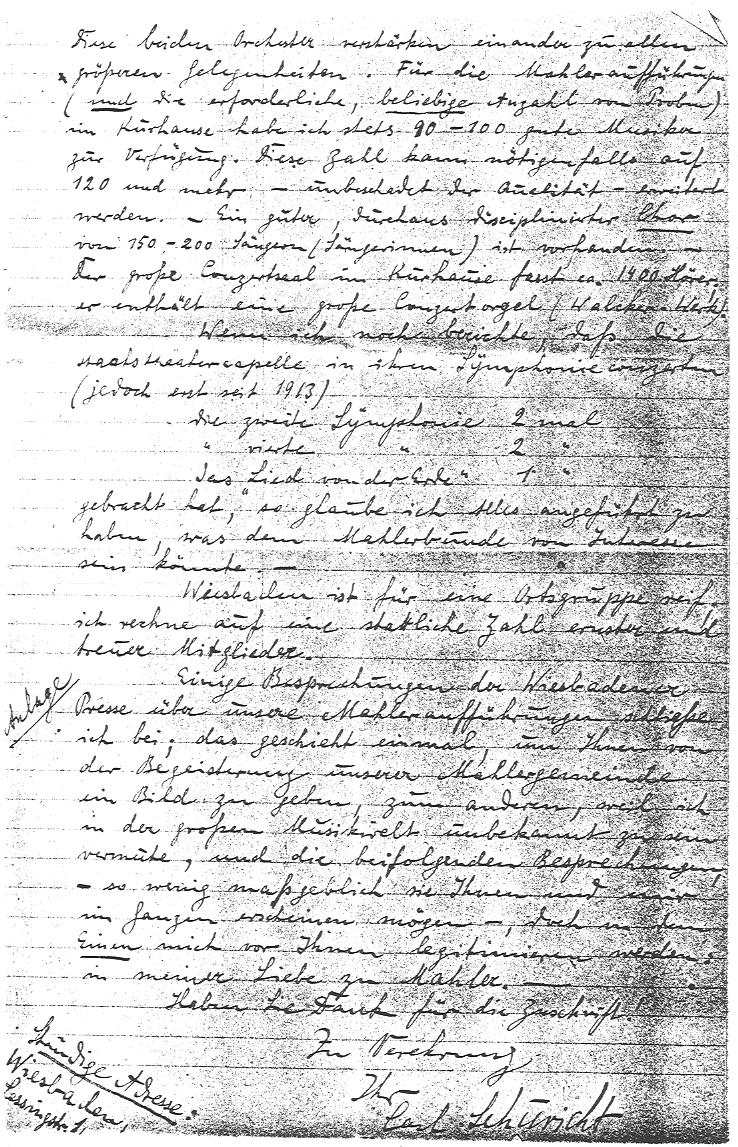 Diese beiden Orchester verstärken einander zu allen
größeren Gelegenheiten. Für die Mahleraufführungen
(und die erforderliche, beliebige Anzahl von Proben)
im Kurhause habe ich stets 90–100 gute Musiker
zur Verfügung. Diese Zahl kann nötigenfalls auf
120 und mehr – unbeschadet der Qualität – erweitert
werden. – Ein guter, durchaus disciplinierter Chor
von 150–200 Sängern (Sängerinnen) ist vorhanden. –
Der große Conzertsaal im Kurhause fasst ca. 1400 Hörer.
er enthält eine große Conzertorgel (Walcker-Werk).
Wenn ich noch berichte, daß die
Staatstheatercapelle in ihren Symphonieconzerten
(jedoch erst seit 1913)
die zweite Symphonie 2 mal
" vierte " 2 "
"das Lied von der Erde" 1 "
gebracht hat, so glaube ich Alles angeführt zu
haben, was dem Mahlerbunde von Interesse
sein könnte. –
Wiesbaden ist für eine Ortsgruppe reif,
ich rechne auf eine stattliche Zahl ernster und
treuer Mitglieder.
Einige Besprechungen der Wiesbadener
Anlage
Presse über unsere Mahleraufführungen schließe
ich bei; das geschieht einmal, um Ihnen von
der Begeisterung unserer Mahlergemeinde
ein Bild zu geben, zum anderen, weil ich
in der großen Musikwelt unbekannt zu sein
vermute, und die beifolgenden Besprechungen,
– so wenig maßgeblich sie Ihnen und mir
im Ganzen erscheinen mögen –, doch in dem
Einen mich vor Ihnen legitimieren werden:
in meiner Liebe zu Mahler. –
Haben Sie Dank für die Zuschrift!
In Verehrung
Ihr
Carl Schuricht
Ständige Adresse:
Wiesbaden,
Lessingstr. 1,